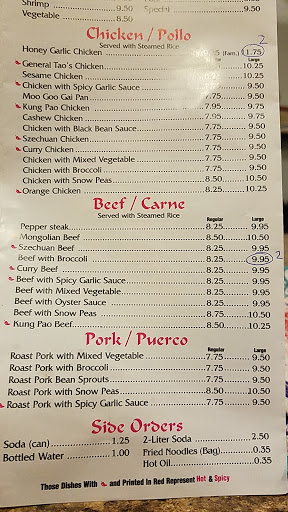 Shrimp 9.50
Vegetable 8.50
Chicken / Pollo
Served with Steamed Rice
Honey Garlic Chicken (Fam.) 1.75 2
Regular Large
General Tao's Chicken 8.25 10.25
Sesame Chicken 10.25
Chicken with Spicy Garlic Sauce 9.50
Moo Goo Gai Pan 7.75 9.50
Kung Pao Chicken 7.95 9.75
Cashew Chicken 7.95 9.75
Chicken with Black Bean Sauce 7.75 9.50
Szechuan Chicken 7.75 9.50
Curry Chicken 7.75 9.50
Chicken with Mixed Vegetable 7.75 9.50
Chicken with Broccoli 7.75 9.50
Chicken with Snow Peas 8.50 10.50
Orange Chicken 8.25 10.25
Beef / Carne
Served with Steamed Rice
Regular Large
Pepper steak 8.25 9.95
Mongolian Beef 8.50 10.50
Szechuan Beef 8.25 9.95
Beef with Broccoli 8.25 9.95 2
Curry Beef 8.25 9.95
Beef with Spicy Garlic Sauce 8.25 9.95
Beef with Mixed Vegetable 8.25 9.95
Beef with Oyster Sauce 8.25 9.95
Beef with Snow Peas 8.75 10.50
Kung Pao Beef 8.50 10.25
Pork / Puerco
Regular Large
Roast Pork with Mixed Vegetable 7.75 9.50
Roast Pork with Broccoli 7.75 9.50
Roast Pork Bean Sprouts 7.75 9.50
Roast Pork with Snow Peas 8.50 10.50
Roast Pork with Spicy Garlic Sauce 7.75 9.50
Side Orders
Soda (can) 1.25 2-Liter Soda 2.50
Bottled Water 1.00 Fried Noodles (Bag) 0.35
Hot Oil 0.35
Those Dishes With and Printed In Red Represent Hot & Spicy